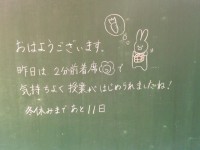 おはようございます。
昨日は 2分前着席 で
気持ちよく授業がはじめられましたね！
冬休みまで あと11日